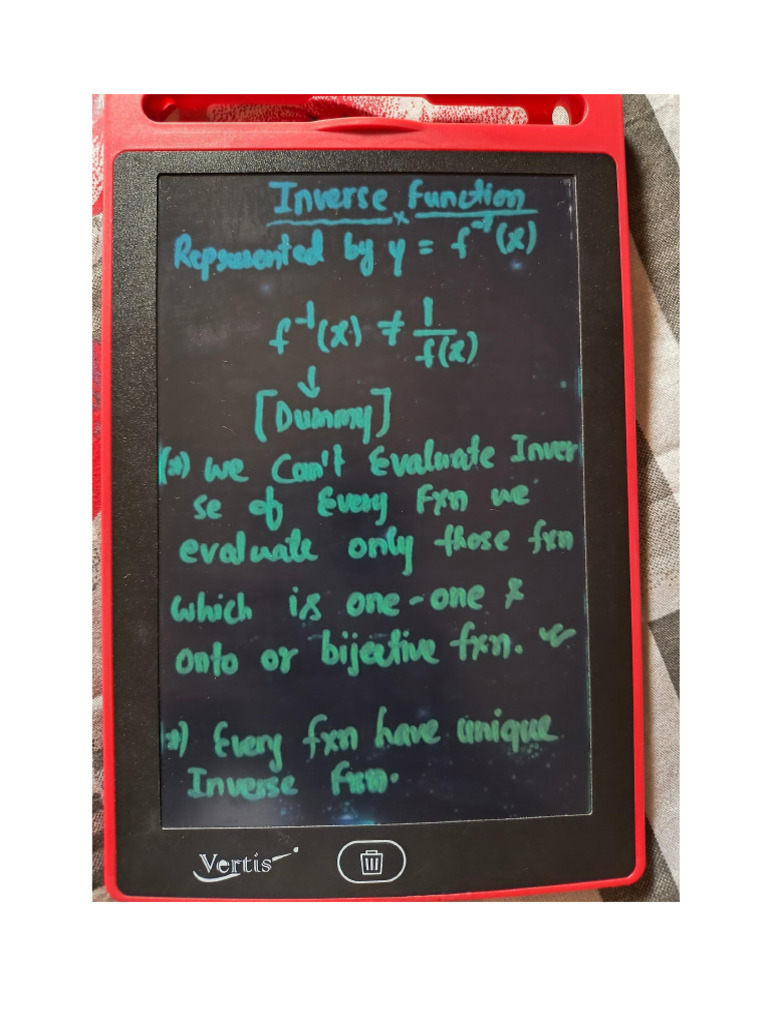 Inverse function
Represented by y = f⁻¹(x)
f⁻¹(x) ≠ 1/f(x)
↓
[Dummy]
(*) we can't Evaluate Inver
se of Every Fxn we
evaluate only those fxn
which is one-one &
onto or bijective fxn.
*) Every fxn have unique
Inverse Fxn.
Vertis